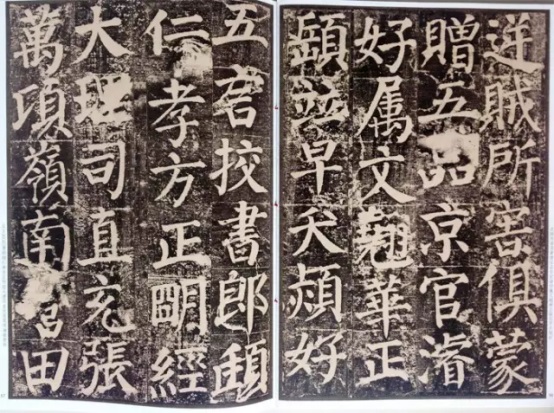 逆賊所害俱蒙
贈五品京官濬
好属文翹華正
頤竝早夭熲好
五言挍書郎頲
仁孝方正明經
大理司直充張
萬頃嶺南營田